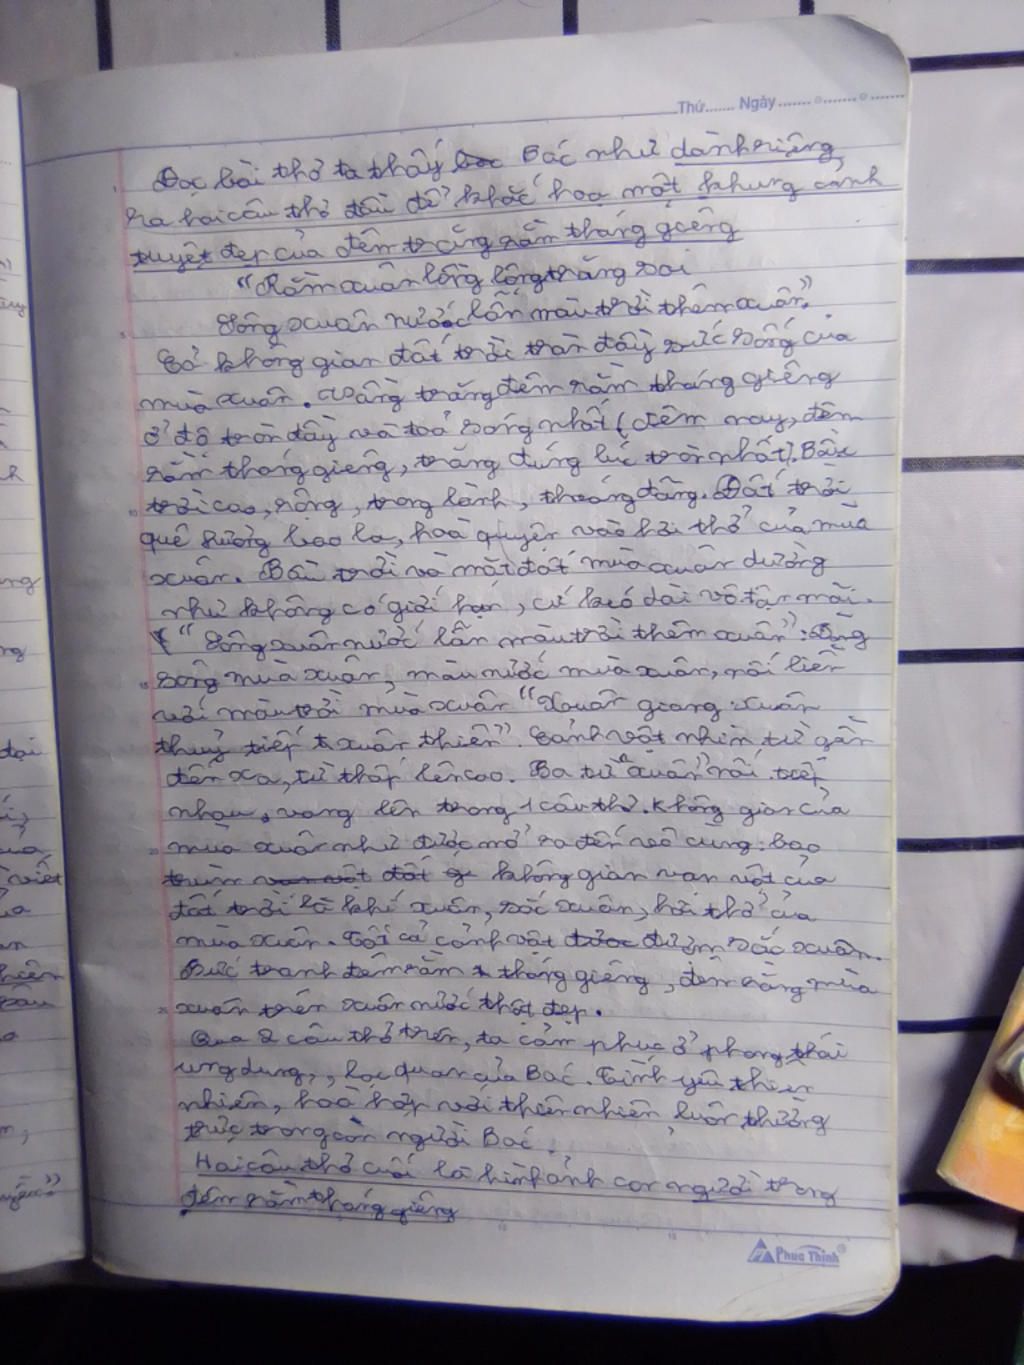 Thứ....... Ngày
Đọc bài thơ ta thấy Bác như dành riêng
ra hai câu thơ đầu để khắc hoạ một khung cảnh
tuyệt đẹp của đêm trăng rằm tháng giêng
"Rằm xuân lồng lộng trăng soi
Sông xuân nước lẫn màu trời thêm xuân."
Cả không gian đất trời tràn đầy sức sống của
mùa xuân. Vầng trăng đêm rằm tháng giêng
ở độ tròn đầy và toả sáng nhất (đêm nay, đêm
rằm tháng giêng, trăng đúng lúc tròn nhất). Bầu
trời cao, rộng, trong lành, thoáng đãng. Đất trời
quê hương bao la, hoà quyện vào hơi thở của mùa
xuân. Bầu trời và mặt đất mùa xuân dường
như không có giới hạn, cứ kéo dài vô tận mãi.
"Sông xuân nước lẫn màu trời thêm xuân": Dòng
sông mùa xuân, màu nước mùa xuân, nối liền
với màu trời mùa xuân "Xuân giang xuân
thuỷ tiếp xuân thiên". Cảnh vật nhìn từ gần
đến xa, từ thấp lên cao. Ba từ "xuân" nối tiếp
nhau, vang lên trong 1 câu thơ. Không gian của
mùa xuân như được mở ra đến vô cùng: bao
trùm không gian vạn vật của
đất trời là khí xuân, sắc xuân, hơi thở của
mùa xuân. Tất cả cảnh vật đượm sắc xuân.
Bức tranh đêm rằm tháng giêng, đêm rằng mùa
xuân trên xuân nước thật đẹp.
Qua 2 câu thơ trên, ta cảm phục ở phong thái
ung dung, lạc quan của Bác. Tình yêu thiên
nhiên, hoà hợp với thiên nhiên luôn thường
trực trong con người Bác.
Hai câu thơ cuối là hình ảnh con người trong
đêm rằm tháng giêng
Phúc Thịnh